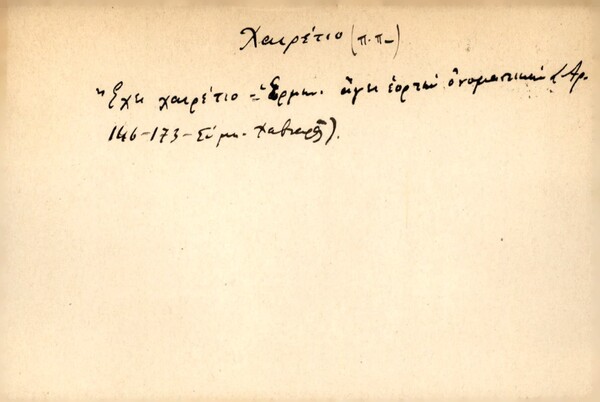 Χαιρέτιο (π.π–)
"Εχει χαιρέτιο = Ἑρμην. ἄγει ἑορτὴν ὀνομαστικήν (Ἀρ.
146-173 – Σύμη. Χαβιαρᾶ).